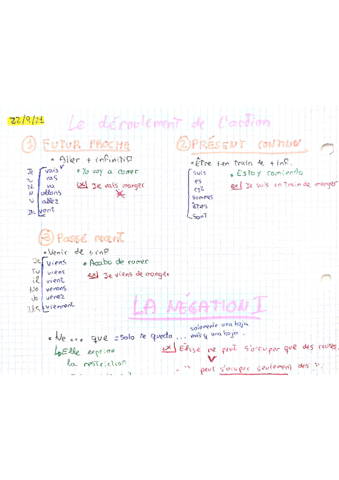 22/9/21
Le déroulement de l'action
① FUTUR PROCHE
• Aller + infinitif
Je vais
T vas
Il va
N allons
V allez
Ils vont
• Yo voy a comer
ex) Je vais manger
② PRÉSENT CONTINU
• Être + en train de + inf.
suis
es
est
sommes
êtes
sont
• Estoy comiendo
ex) Je suis en train de manger
③ PASSÉ RÉCENT
• Venir de + inf
Je viens
Tu viens
il vient
No venons
Vo venez
Ils viennent
• Acabo de comer
ex) Je viens de manger
LA NÉGATION I
• Ne ... que = Solo me queda ...
solamente una hoja
más q una hoja.
↳ Elle exprime
la restriction
ex) Élise ne peut s'occuper que des courses.
- " peut s'occuper seulement des ".